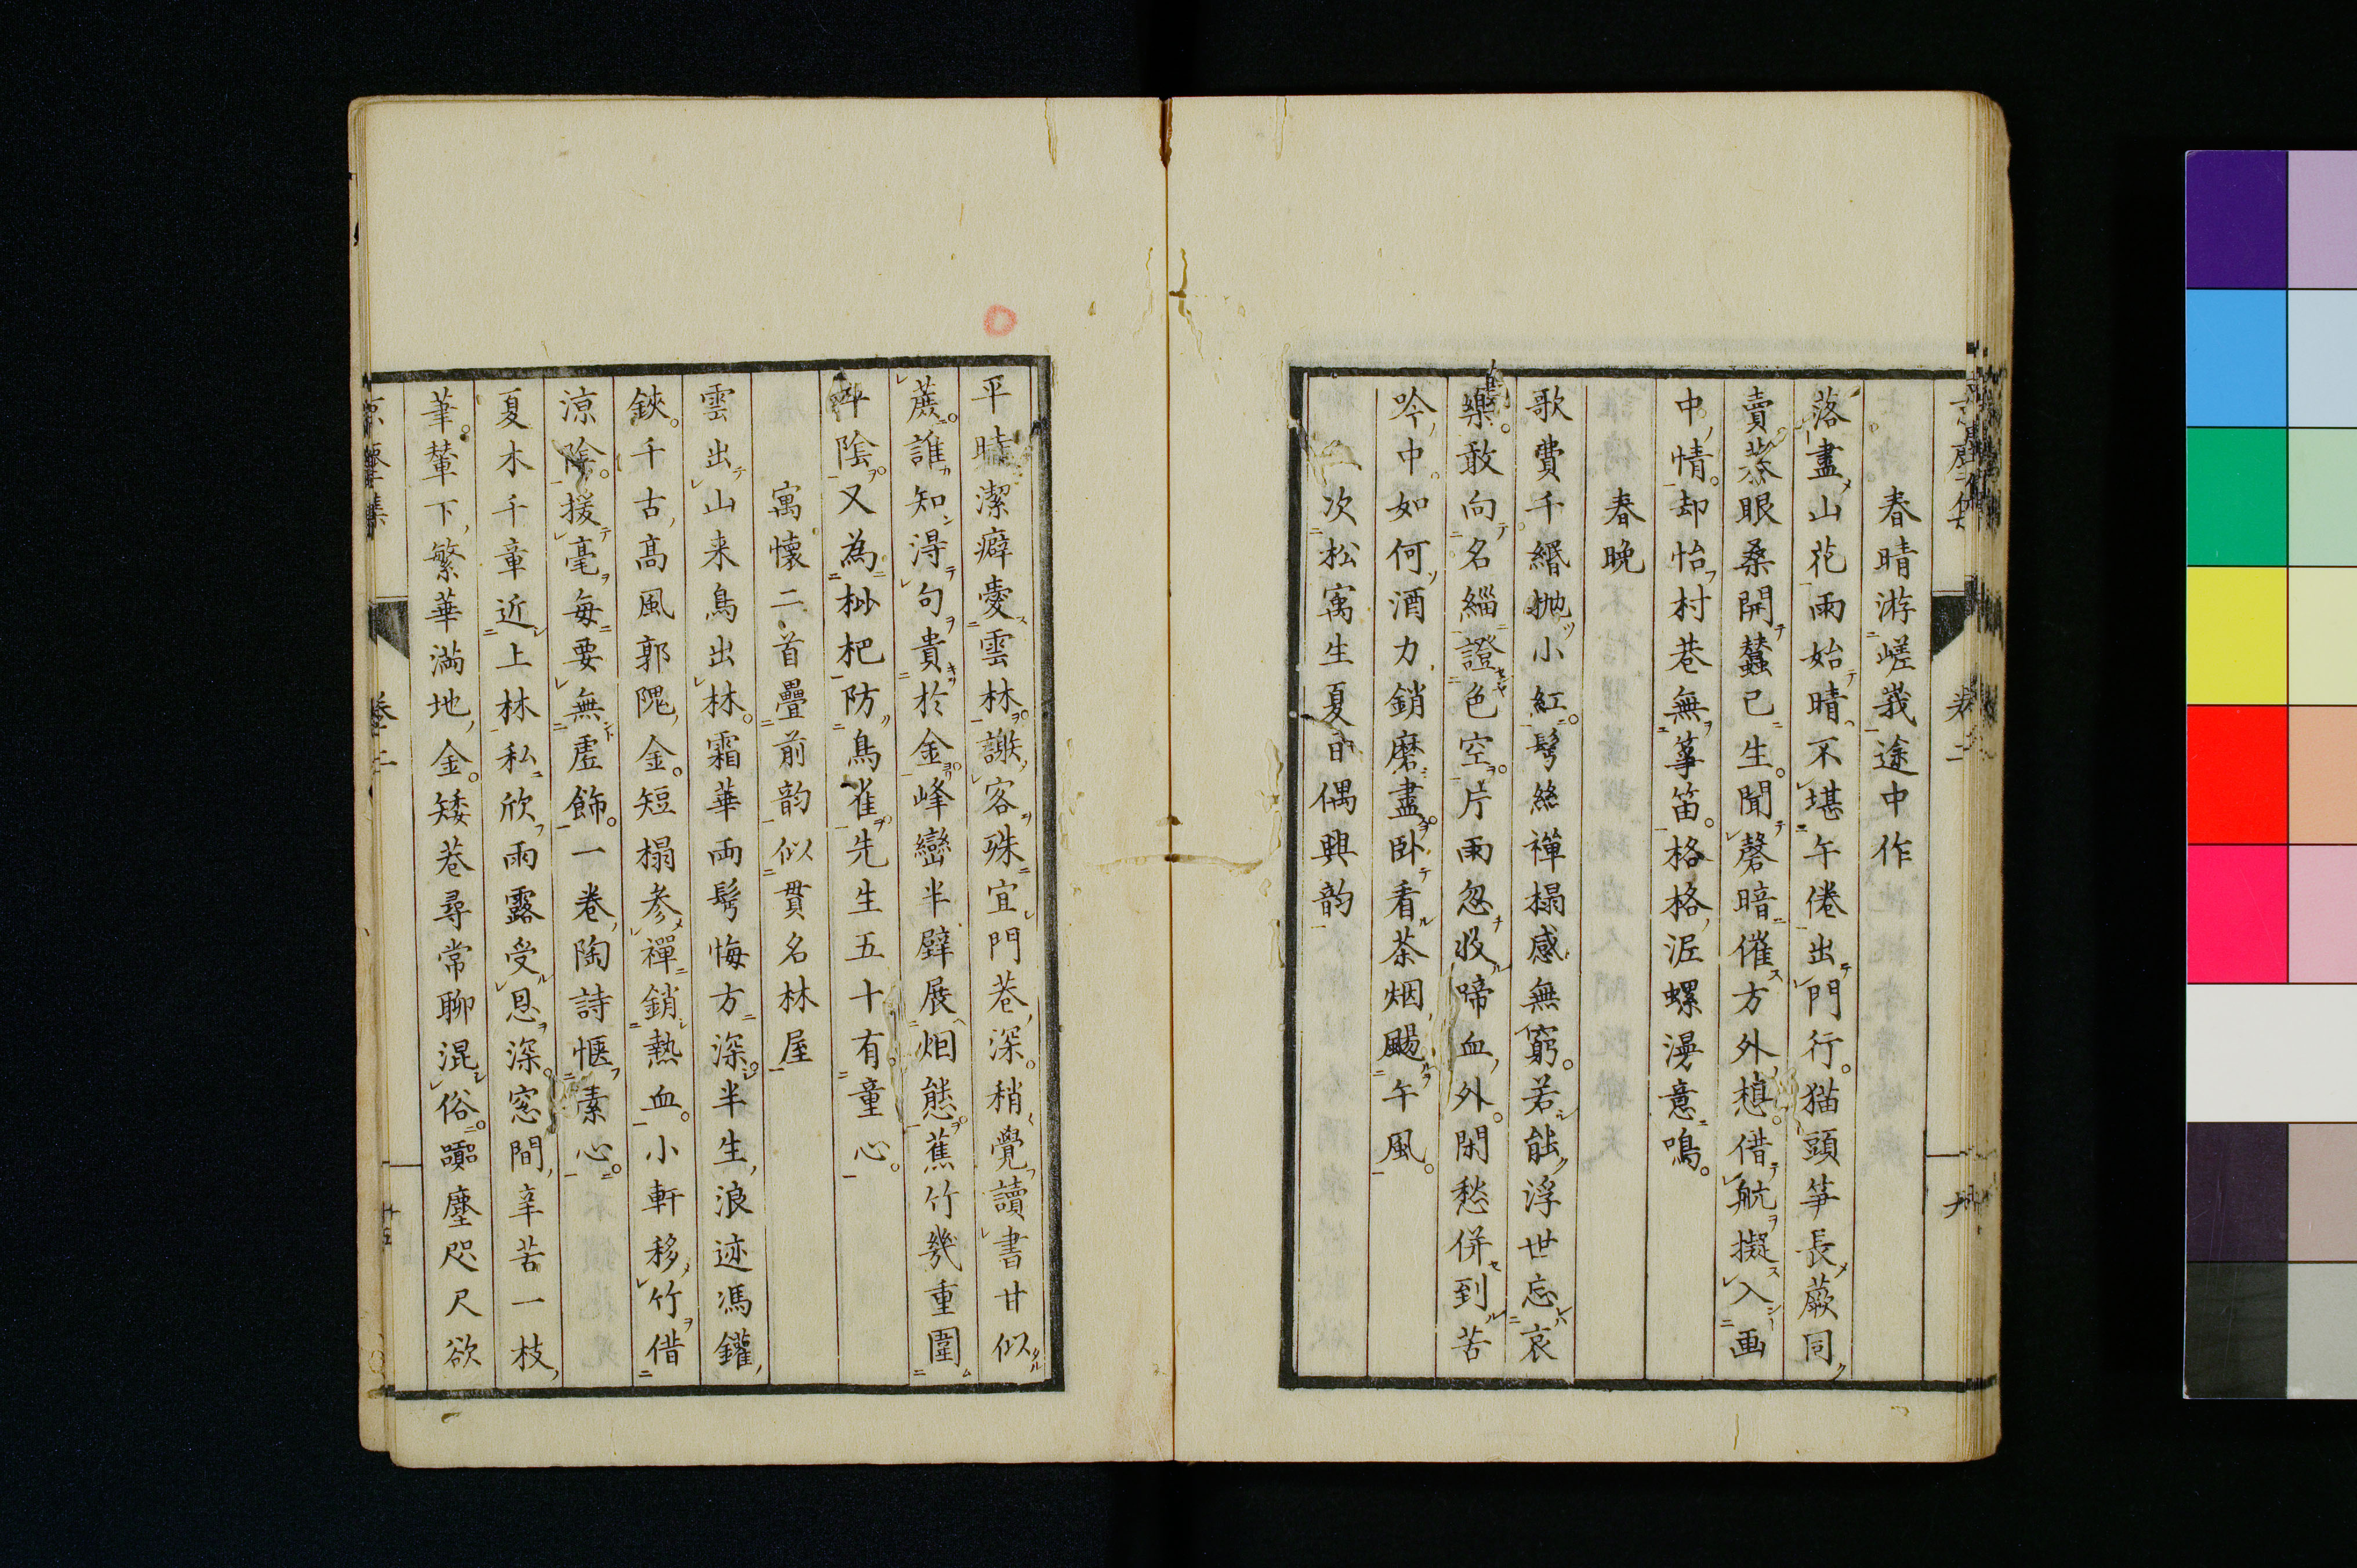 春晴游嵯峩途中作
落盡山花雨始晴不堪午倦出門行猫頭筍長蕨同
賣菜眼桑開蠶已生聞磬暗催方外想借航擬入画
中情却怡村巷無箏笛格格泥螺漫意鳴
春晚
歌費千緡抛小紅髩絲禪榻感無窮若能浮世忘哀
樂敢向名緇證色空片雨忽收啼血外閑愁併到苦
吟中如何酒力銷磨盡卧看茶烟颺午風
次松寓生夏日偶興韵
平時潔癖愛雲林謝客殊宜門巷深稍覺讀書甘似
蔗誰知得句貴於金峰巒半壁展烟態蕉竹幾重圍
午陰又為枇杷防鳥雀先生五十有童心
寓懷二首疊前韵似貫名林屋
雲出山来鳥出林霜華両髩悔方深半生浪迹馮鑵
鋏千古高風郭隗金短榻参禪銷熱血小軒移竹借
涼陰援毫每要無虛飾一卷陶詩愜素心
夏木千章近上林私欣雨露受恩深窓間辛苦一枝
筆輦下繁華満地金矮巷尋常聊混俗囂塵咫尺欲
卷二
十五